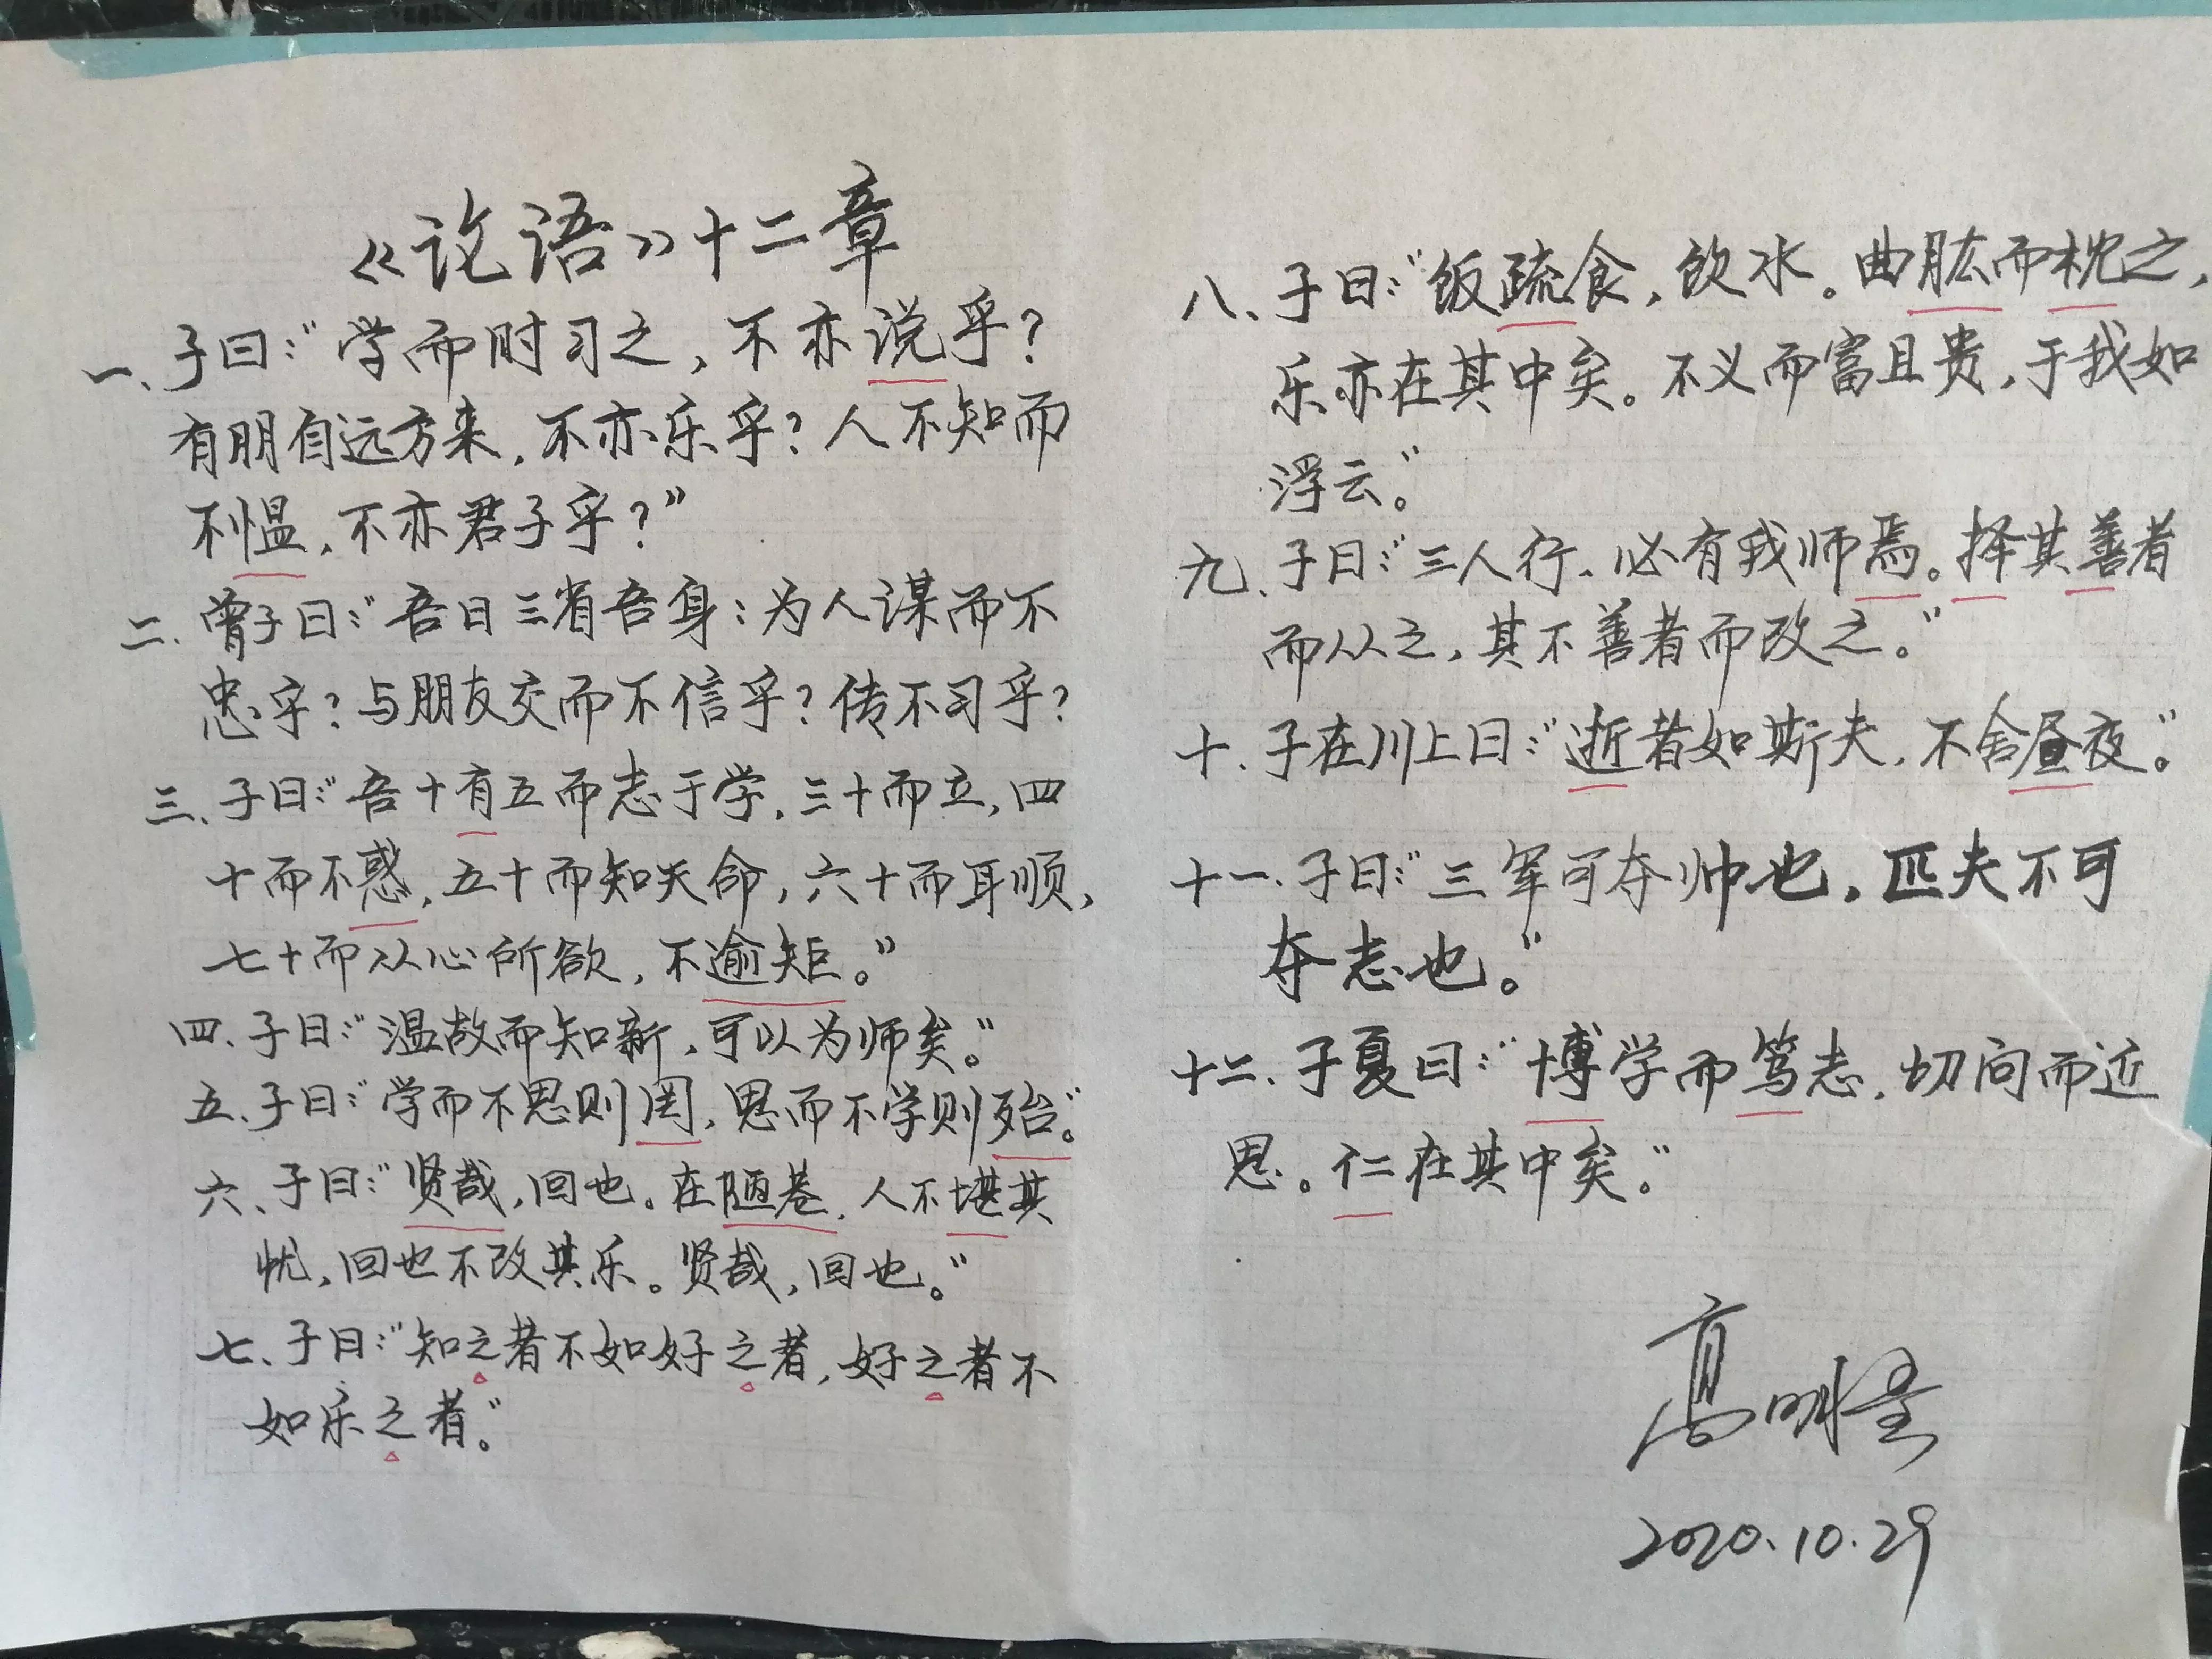 《论语》十二章
一、子曰："学而时习之，不亦说乎？
有朋自远方来，不亦乐乎？人不知而
不愠，不亦君子乎？"
二、曾子曰："吾日三省吾身：为人谋而不
忠乎？与朋友交而不信乎？传不习乎？
三、子曰："吾十有五而志于学，三十而立，四
十而不惑，五十而知天命，六十而耳顺，
七十而从心所欲，不逾矩。"
四、子曰："温故而知新，可以为师矣。"
五、子曰："学而不思则罔，思而不学则殆。"
六、子曰："贤哉，回也。在陋巷，人不堪其
忧，回也不改其乐。贤哉，回也。"
七、子曰："知之者不如好之者，好之者不
如乐之者。"
八、子曰："饭疏食，饮水。曲肱而枕之，
乐亦在其中矣。不义而富且贵，于我如
浮云。"
九、子曰："三人行、必有我师焉。择其善者
而从之，其不善者而改之。"
十、子在川上曰："逝者如斯夫，不舍昼夜。"
十一、子曰："三军可夺帅也，匹夫不可
夺志也。"
十二、子夏曰："博学而笃志，切问而近
思。仁在其中矣。"
高明
2020.10.29